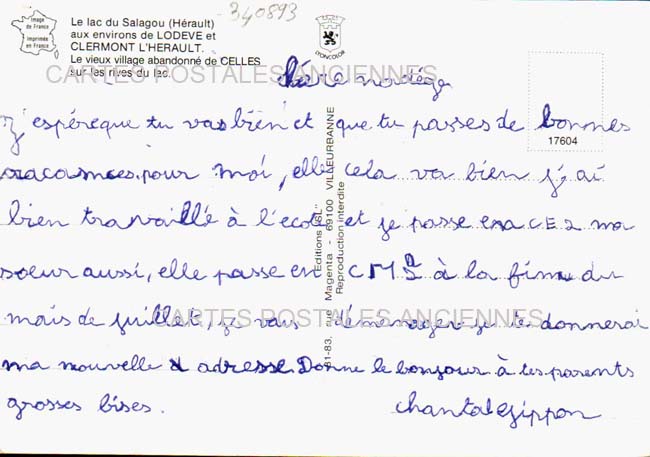 340893
Image de France
Imprimée en France
Le lac du Salagou (Hérault)
aux environs de LODEVE et
CLERMONT L'HERAULT.
Le vieux village abandonné de CELLES
sur les rives du lac.
LYONCOLOR
CARTES POSTALES ANCIENNES
17604
Editions "SL"
81-83, rue Magenta - 69100 VILLEURBANNE
Reproduction interdite
j'espére que tu vas bien et que tu passes de bonnes
vacances. pour moi, elle cela va bien j'ai
bien travaillé à l'école et je passe en CE2 ma
soeur aussi, elle passe en CM2 à la fin du
mais de juillet, je vais démenager je te donnerai
ma nouvelle adresse. Donne le bonjour à tes parents
grosses bises. chantal gippon
CARTES POSTALES ANCIENNES